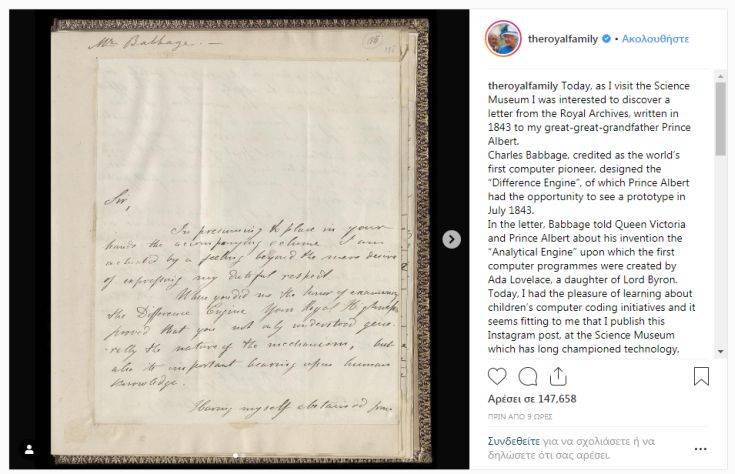 Mr Babbage. —
Sir,
In presuming to place in your
hands the accompanying volume I am
actuated by a feeling beyond the mere desire
of expressing my dutiful respect.
When you did me the honor of examining
the Difference Engine Your Royal Highness
proved that you not only understood gene-
rally the nature of the mechanism, but
also its important bearing upon human
knowledge.
Having myself abstained from
theroyalfamily • Ακολουθήστε
theroyalfamily Today, as I visit the Science
Museum I was interested to discover a
letter from the Royal Archives, written in
1843 to my great-great-grandfather Prince
Albert.
Charles Babbage, credited as the world's
first computer pioneer, designed the
“Difference Engine”, of which Prince Albert
had the opportunity to see a prototype in
July 1843.
In the letter, Babbage told Queen Victoria
and Prince Albert about his invention the
“Analytical Engine” upon which the first
computer programmes were created by
Ada Lovelace, a daughter of Lord Byron.
Today, I had the pleasure of learning about
children's computer coding initiatives and it
seems fitting to me that I publish this
Instagram post, at the Science Museum
which has long championed technology,
Αρέσει σε 147,658
ΠΡΙΝ ΑΠΌ 9 ΏΡΕΣ
Συνδεθείτε για να σχολιάσετε ή να
δηλώσετε ότι σας αρέσει.